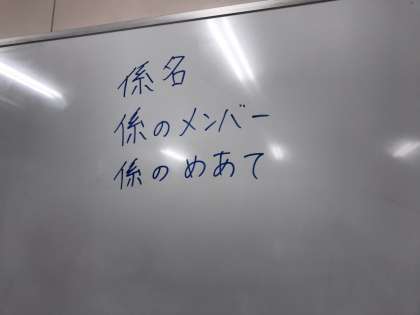 係名
係のメンバー
係のめあて